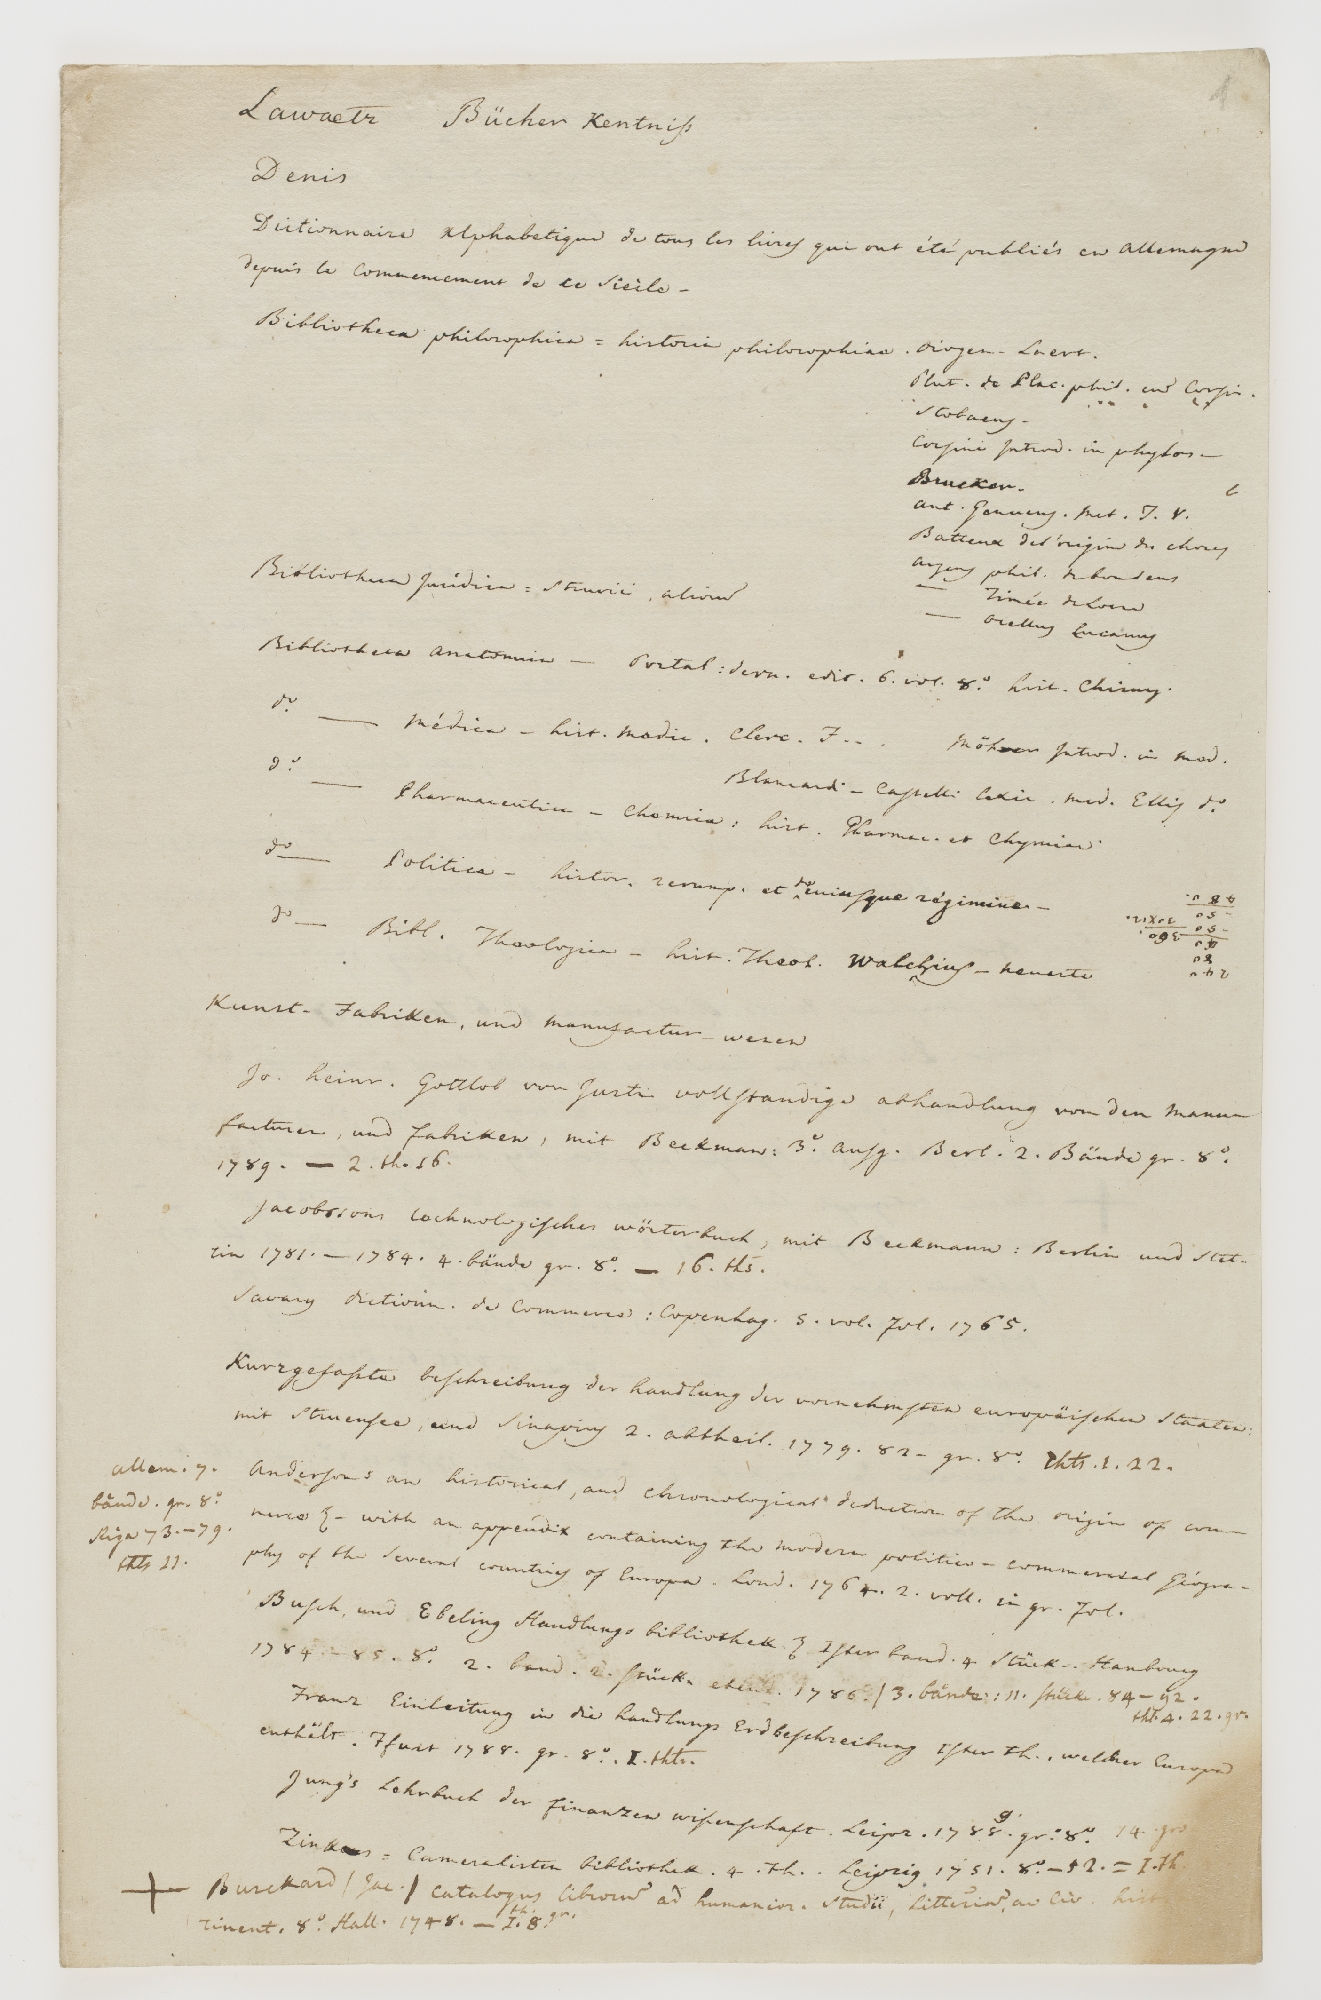 1
Lawaetz Bücher Kentniß
Denis
Dictionnaire Alphabetique de tous les livres qui ont été publiés en Allemagne
depuis le commencement de ce Siécle -
Bibliotheca philosophica = historia philosophiae . Diogen - Laert .
Plut . de Plac . phil . cur Corsin .
Stobaeus -
Corsini Introd . in phylos -
Brucker .
Ant . Genuens . Met . T . V .
Batteux de l'origine des choses
Argens phil . du bon sens
— Timée de Locre
— Ocellus Lucanus
Bibliotheca Juridica = Struvii , alior
Bibliotheca Anatomica — Portal : dern . edit . 6 . vol . 8º hist . Chirurg .
dº — Médica - hist . Medic . Clerc . F . . . Introd . in med .
Blancardi - Castelli Lexic . med . Ellis dº
dº — Pharmaceutica - Chemica : hist . Pharmac . et Chymiae
dº — Politica - histor . rerump . et cuiusque régimine -
dº — Bibl . Theologica - hist . Theol . Walchius - neueste
Kunst - Fabriken , und Manufactur - wesen
Jo . heinr . Gottlob von Justi vollständige abhandlung von den Manu-
facturen , und fabriken , mit Beckman : 3º Ausg . Berl . 2 . Bände gr . 8º .
1789 . — 2 . th . 16 .
Jacobssons technologisches wörterbuch , mit Beckmann : Berlin und Stet-
tin 1781 . — 1784 . 4 . bände gr . 8º . — 16 . ths .
Savary dictionn . de Commerce : Copenhag . 5 . vol . fol . 1765 .
Kurzgefaßte beschreibung der handlung der vornehmsten europäischen Staaten :
mit Struensee , und Sinapius 2 . abtheil . 1779 . 82 - gr . 8º . thts . 1 . 22 .
allem . 7 .
bände . gr . 8º
Riga 73 . - 79 .
thts 11 .
Andersons an historical , and chronological deduction of the origin of com-
merce & - with an appendix containing the modern politico - commercial Géogra-
phy of the several countries of Europa . Lond . 1764 . 2 . voll . in gr . fol .
Busch , und Ebeling Handlungs bibliothek & Ister band . 4 Stück - . Hambourg
1784 - 85 . 8º . 2 . band . 2 . stück . ebend . 1786 . / 3 . bände : : 11 . stücke . 84 - 92 .
tht . 4 . 22 . gr .
Franz Einleitung in die handlungs Erdbeschreibung Ister th . , welcher Europa
enthält . Ffurt 1788 . gr . 8º . I . tht .
Jung's Lehrbuch der finanzen wissenschaft . Leipz . 1789 . gr . 8º . 14 . gr
Zinkens = Cameralisten bibliothek . 4 . th . . Leipzig 1751 . 8º . - 52 . = I . th .
Burckard / Jac . / catalogus libror ad humanior . studii , litterar , ac civ . hist
tinent . 8º . Hall . 1748 . — I . th . 8 . gr .